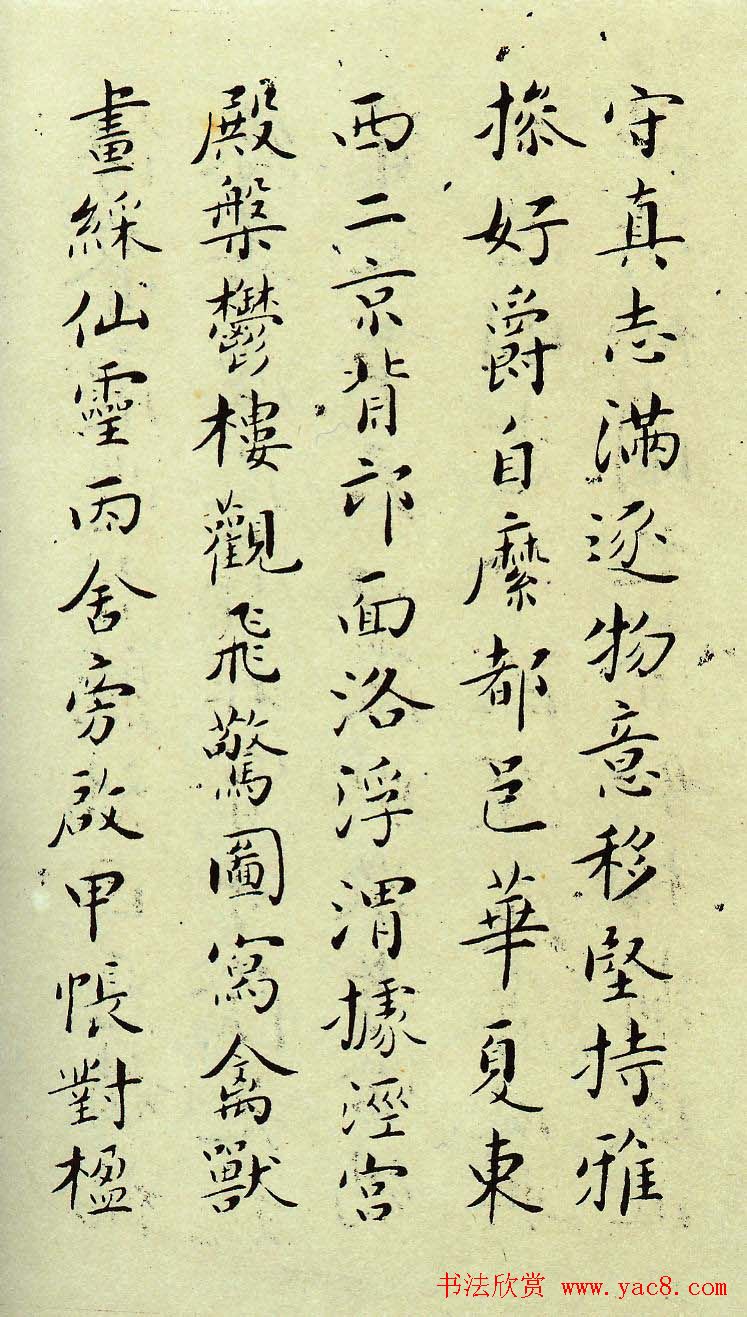 守真志滿逐物意移堅持雅
操好爵自縻都邑華夏東
西二京背邙面洛浮渭據涇宮
殿槃鬱樓觀飛驚圖寫禽獸
畫綵仙靈丙舍旁啟甲帳對楹
书法欣赏 www.yac8.com